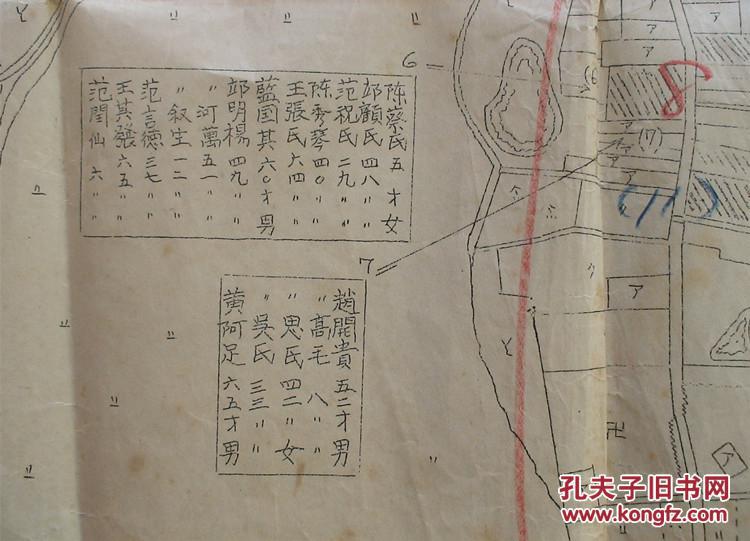 6
陈蔡氏 五 才 女
邱顏氏 四八 〃 〃
范祝氏 二九 〃 〃
陈秀琴 四〇 〃 〃
王張氏 六四 〃 〃
藍国其 六〇 才 男
邱明楊 四九 〃 〃
〃 河萬 五一 〃 〃
〃 叙生 一二 〃 〃
范言德 三七 〃 〃
王其張 六五 〃 〃
范閏仙 六 〃 〃
7
趙開貴 五二 才 男
〃 高毛 八 〃 〃
〃 思氏 四二 〃 女
〃 吳氏 三三 〃 〃
黄阿足 六五 才 男
(6)
8
ア
ア
ア
(7)
ア
ア
ア
(11)
ア
卍
孔夫子旧书网
www.kongfz.com